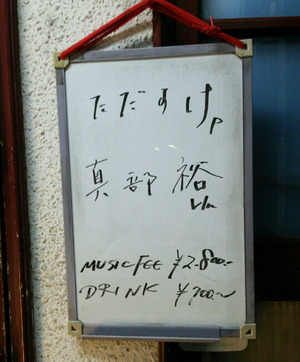 ただすけ P
真部 裕 Vln
MUSIC FEE ¥2.800.-
DRINK ¥700.~